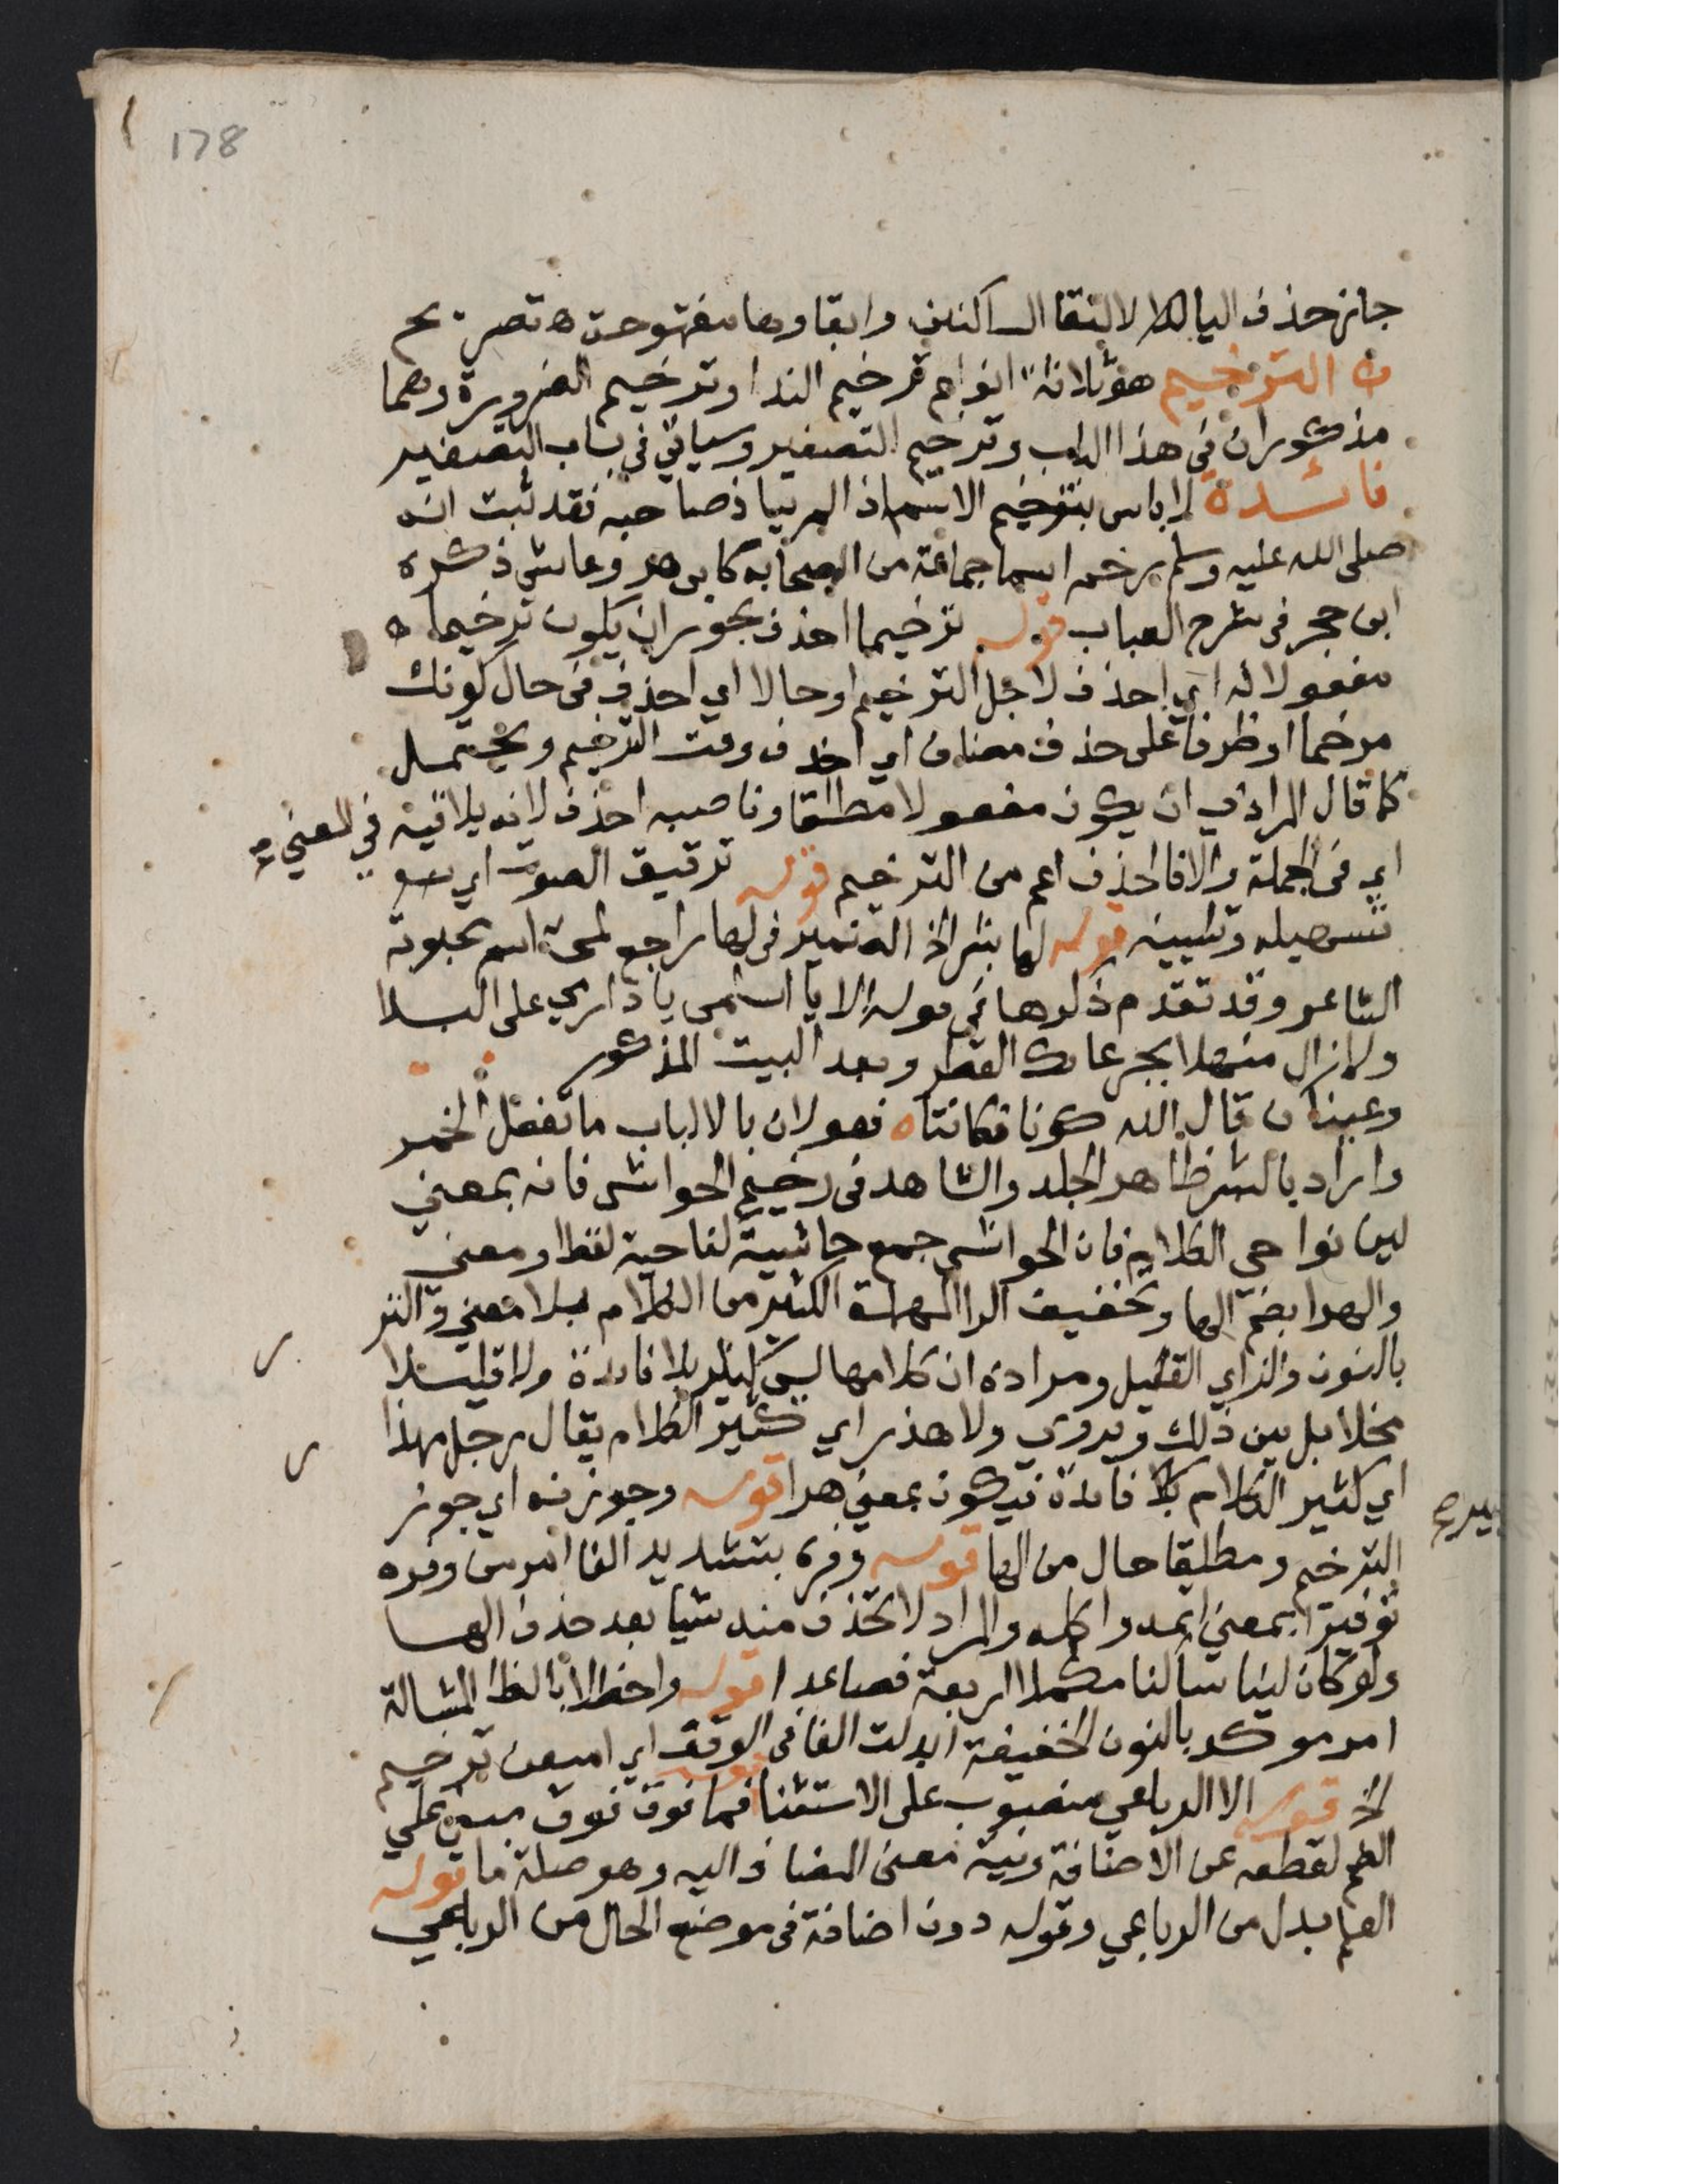 178
جاز حذف اليا لالتقا الساكنين وابقاوها مفتوحة ه تصريح
ه الترخيم هو ثلاثة انواع ترخيم الندا وترخيم الضرورة وهما
مذكوران في هذا الباب وترخيم التصغير وسياتي في باب التصغير
فائدة لا باس بترخيم الاسم اذا لم يتاذ صاحبه فقد ثبت انه
صلى الله عليه وسلم رخم اسما جماعة من الصحابة كابي هر وعايش ذكره
ابن حجر في شرح العباب قوله ترخيما احذف يجوز ان يكون ترخيما ه
مفعولا له اي احذف لاجل الترخيم او حالا اي احذف في حال كونك
مرخما او ظرفا على حذف مضاف اي احذف وقت الترخيم ويحتمل
كما قال المرادي ان يكون مفعولا مطلقا وناصبه احذف لانه يلاقيه في المعني
اي في الجملة والا فالحذف اعم من الترخيم قوله ترقيق الصوت اي
تسهيله وتليينه قوله لها بشر الخ الضمير في لها راجع لمي اسم محبوبة
الشاعر وقد تقدم ذكرها في قوله الا يا اسلمي يا دار مي على البلا
ولا زال منهلا بجرعائك القطر وبعد البيت المذكور
وعينان قال الله كونا فكانتا ه فعولان بالالباب ما تفعل الخمر
واراد بالبشر ظاهر الجلد والشاهد في رخيم الحواشي فانه بمعني
لين نواحي الكلام فان الحواشي جمع حاشية كناحية لفظا ومعني
والهرا بضم الها وتخفيف الرا المهملة الكثير من الكلام بلا معني والنزر
بالنون والزاي القليل ومراده ان كلامها ليس كثير بلا فائدة ولا قليلا
مخلا بل بين ذلك ويروي ولا هذر اي كثير الكلام يقال رجل مهذا
اي كثير الكلام بلا فائدة فيكون بمعني هرا قوله وجوزنه اي جوز
الترخيم ومطلقا حال من الها قوله وفره بتشديد الفا امر من وفره
توفيرا بمعني اتمه واكمله والمراد لا تحذف منه شيا بعد حذف الها
ولو كان لينا ساكنا مكملا اربعة فصاعدا قوله واحظلا بالظا المشالة
امر موكد بالنون الخفيفة ابدلت الفا في الوقف اي امنعن ترخيم
الخ قوله الا الرباعي منصوب على الاستثنا قوله فما فوق فوق مبني علي
الضم لقطعه عن الاضافة ونية معنى المضاف اليه وهو صلة ما قوله
العلم بدل من الرباعي وقوله دون اضافة في موضع الحال من الرباعي